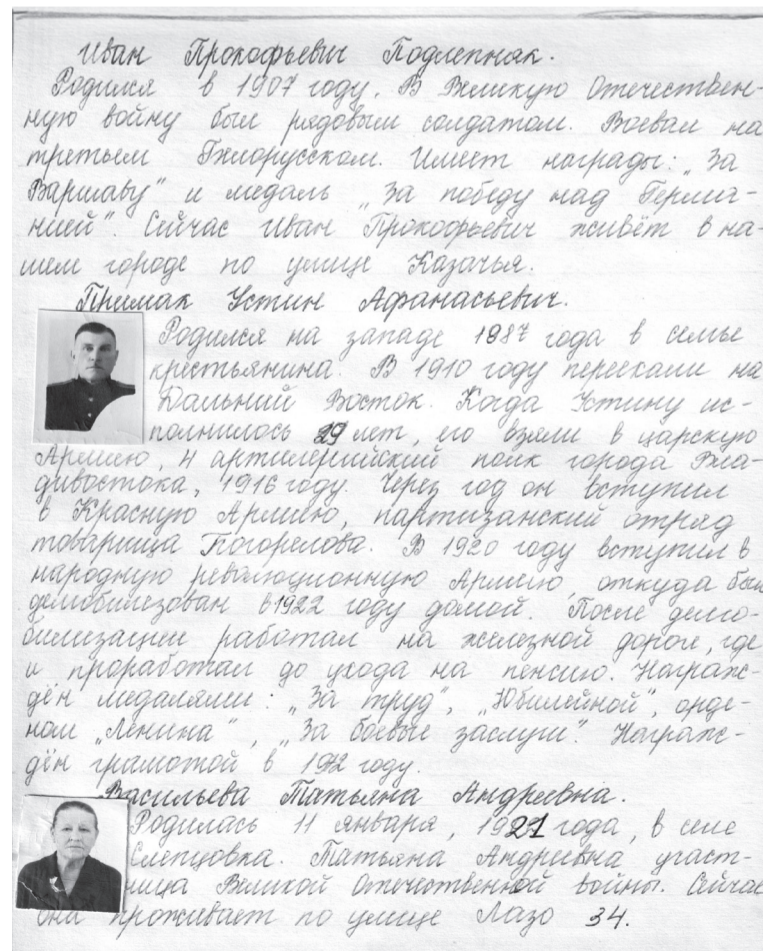 Иван Прокофьевич Подлепняк.
Родился в 1907 году. В Великую Отечествен-
ную войну был рядовым солдатом. Воевал на
третьем Белорусском. Имеет награды: „За
Варшаву" и медаль „За победу над Герма-
нией". Сейчас Иван Прокофьевич живёт в на-
шем городе по улице Казачья.
Примак Устин Афанасьевич.
Родился на западе 1987 года в семье
крестьянина. В 1910 году переехали на
Дальний Восток. Когда Устину ис-
полнилось 29 лет, его взяли в царскую
Армию, 4 артилерийский полк города Вла-
дивостока, 1916 году. Через год он вступил
в Красную Армию, партизанский отряд
товарища Погорелова. В 1920 году вступил в
народную революционную Армию, откуда был
демобилезован в 1922 году домой. После демо-
билизации работал на железной дороге, где
и проработал до ухода на пенсию. Награж-
дён медалями: „За труд", „Юбилейной", орде-
ном „Ленина", „За боевые заслуги". Награж-
дён грамотой в году.
Васильева Татьяна Андреевна.
Родилась 11 января, 1921 года, в селе
Слепцовка. Татьяна Андреевна участ-
ница Великой Отечественной войны. Сейчас
она проживает по улице Лазо 34.